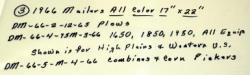 ③ 1966 Mailers All Color 17" x 22"
DM-66-2-12-65 Plows
DM-66-4-75M-3-66 1650, 1850, 1950, All Equip
Shown is for High Plains & Western U.S.
DM-66-5-M-4-66 Combines & Corn Pickers